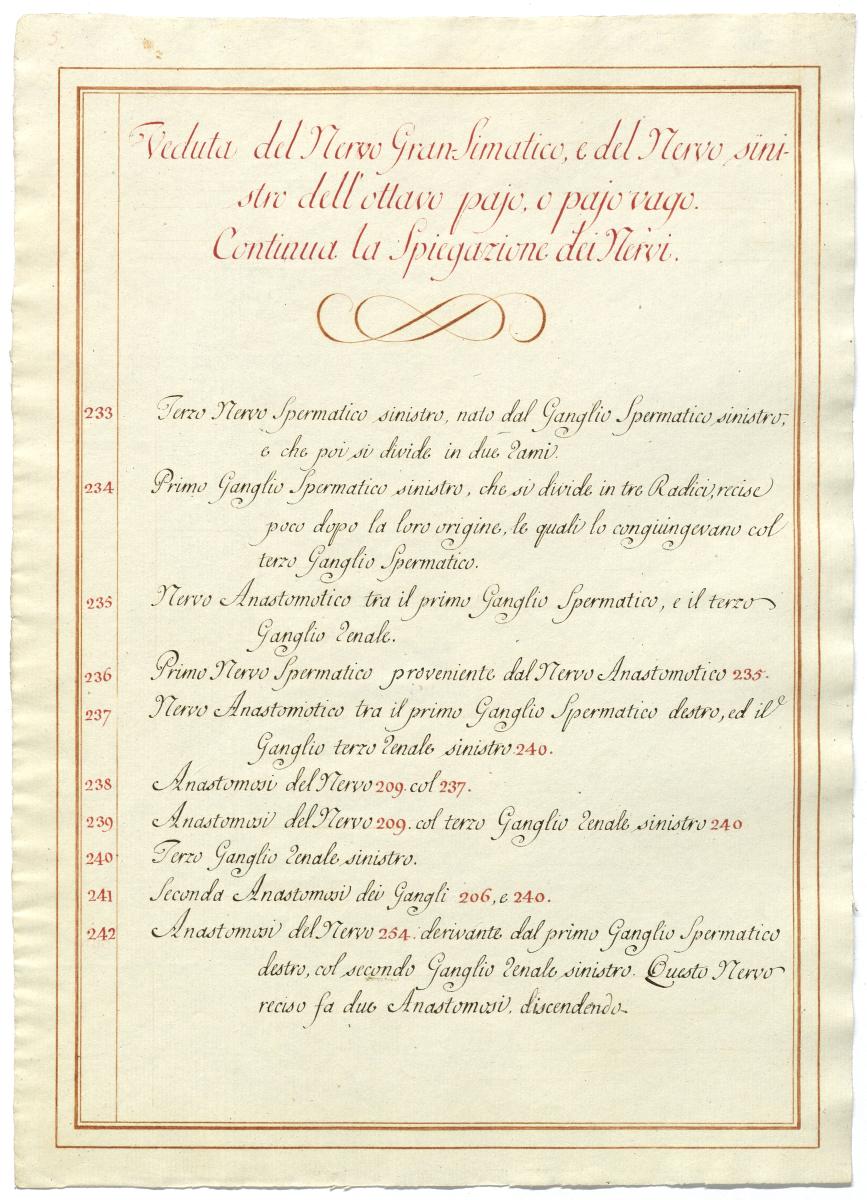 5
Veduta del Nervo Gran-Simatico, e del Nervo sini-
stro dell'ottavo pajo, o pajo vago.
Continua la Spiegazione dei Nervi.
233 Terzo Nervo Spermatico sinistro, nato dal Ganglio Spermatico sinistro,
e che poi si divide in due rami.
234 Primo Ganglio Spermatico sinistro, che si divide in tre Radici, recise
poco dopo la loro origine, le quali lo congiungevano col
terzo Ganglio Spermatico.
235 Nervo Anastomotico tra il primo Ganglio Spermatico, e il terzo
Ganglio renale.
236 Primo Nervo Spermatico proveniente dal Nervo Anastomotico 235.
237 Nervo Anastomotico tra il primo Ganglio Spermatico destro, ed il
Ganglio terzo renale sinistro 240.
238 Anastomosi del Nervo 209. col 237.
239 Anastomosi del Nervo 209. col terzo Ganglio renale sinistro 240
240 Terzo Ganglio renale sinistro.
241 Seconda Anastomosi dei Gangli 206, e 240.
242 Anastomosi del Nervo 254. derivante dal primo Ganglio Spermatico
destro, col secondo Ganglio renale sinistro. Questo Nervo
reciso fa due Anastomosi, discendendo.